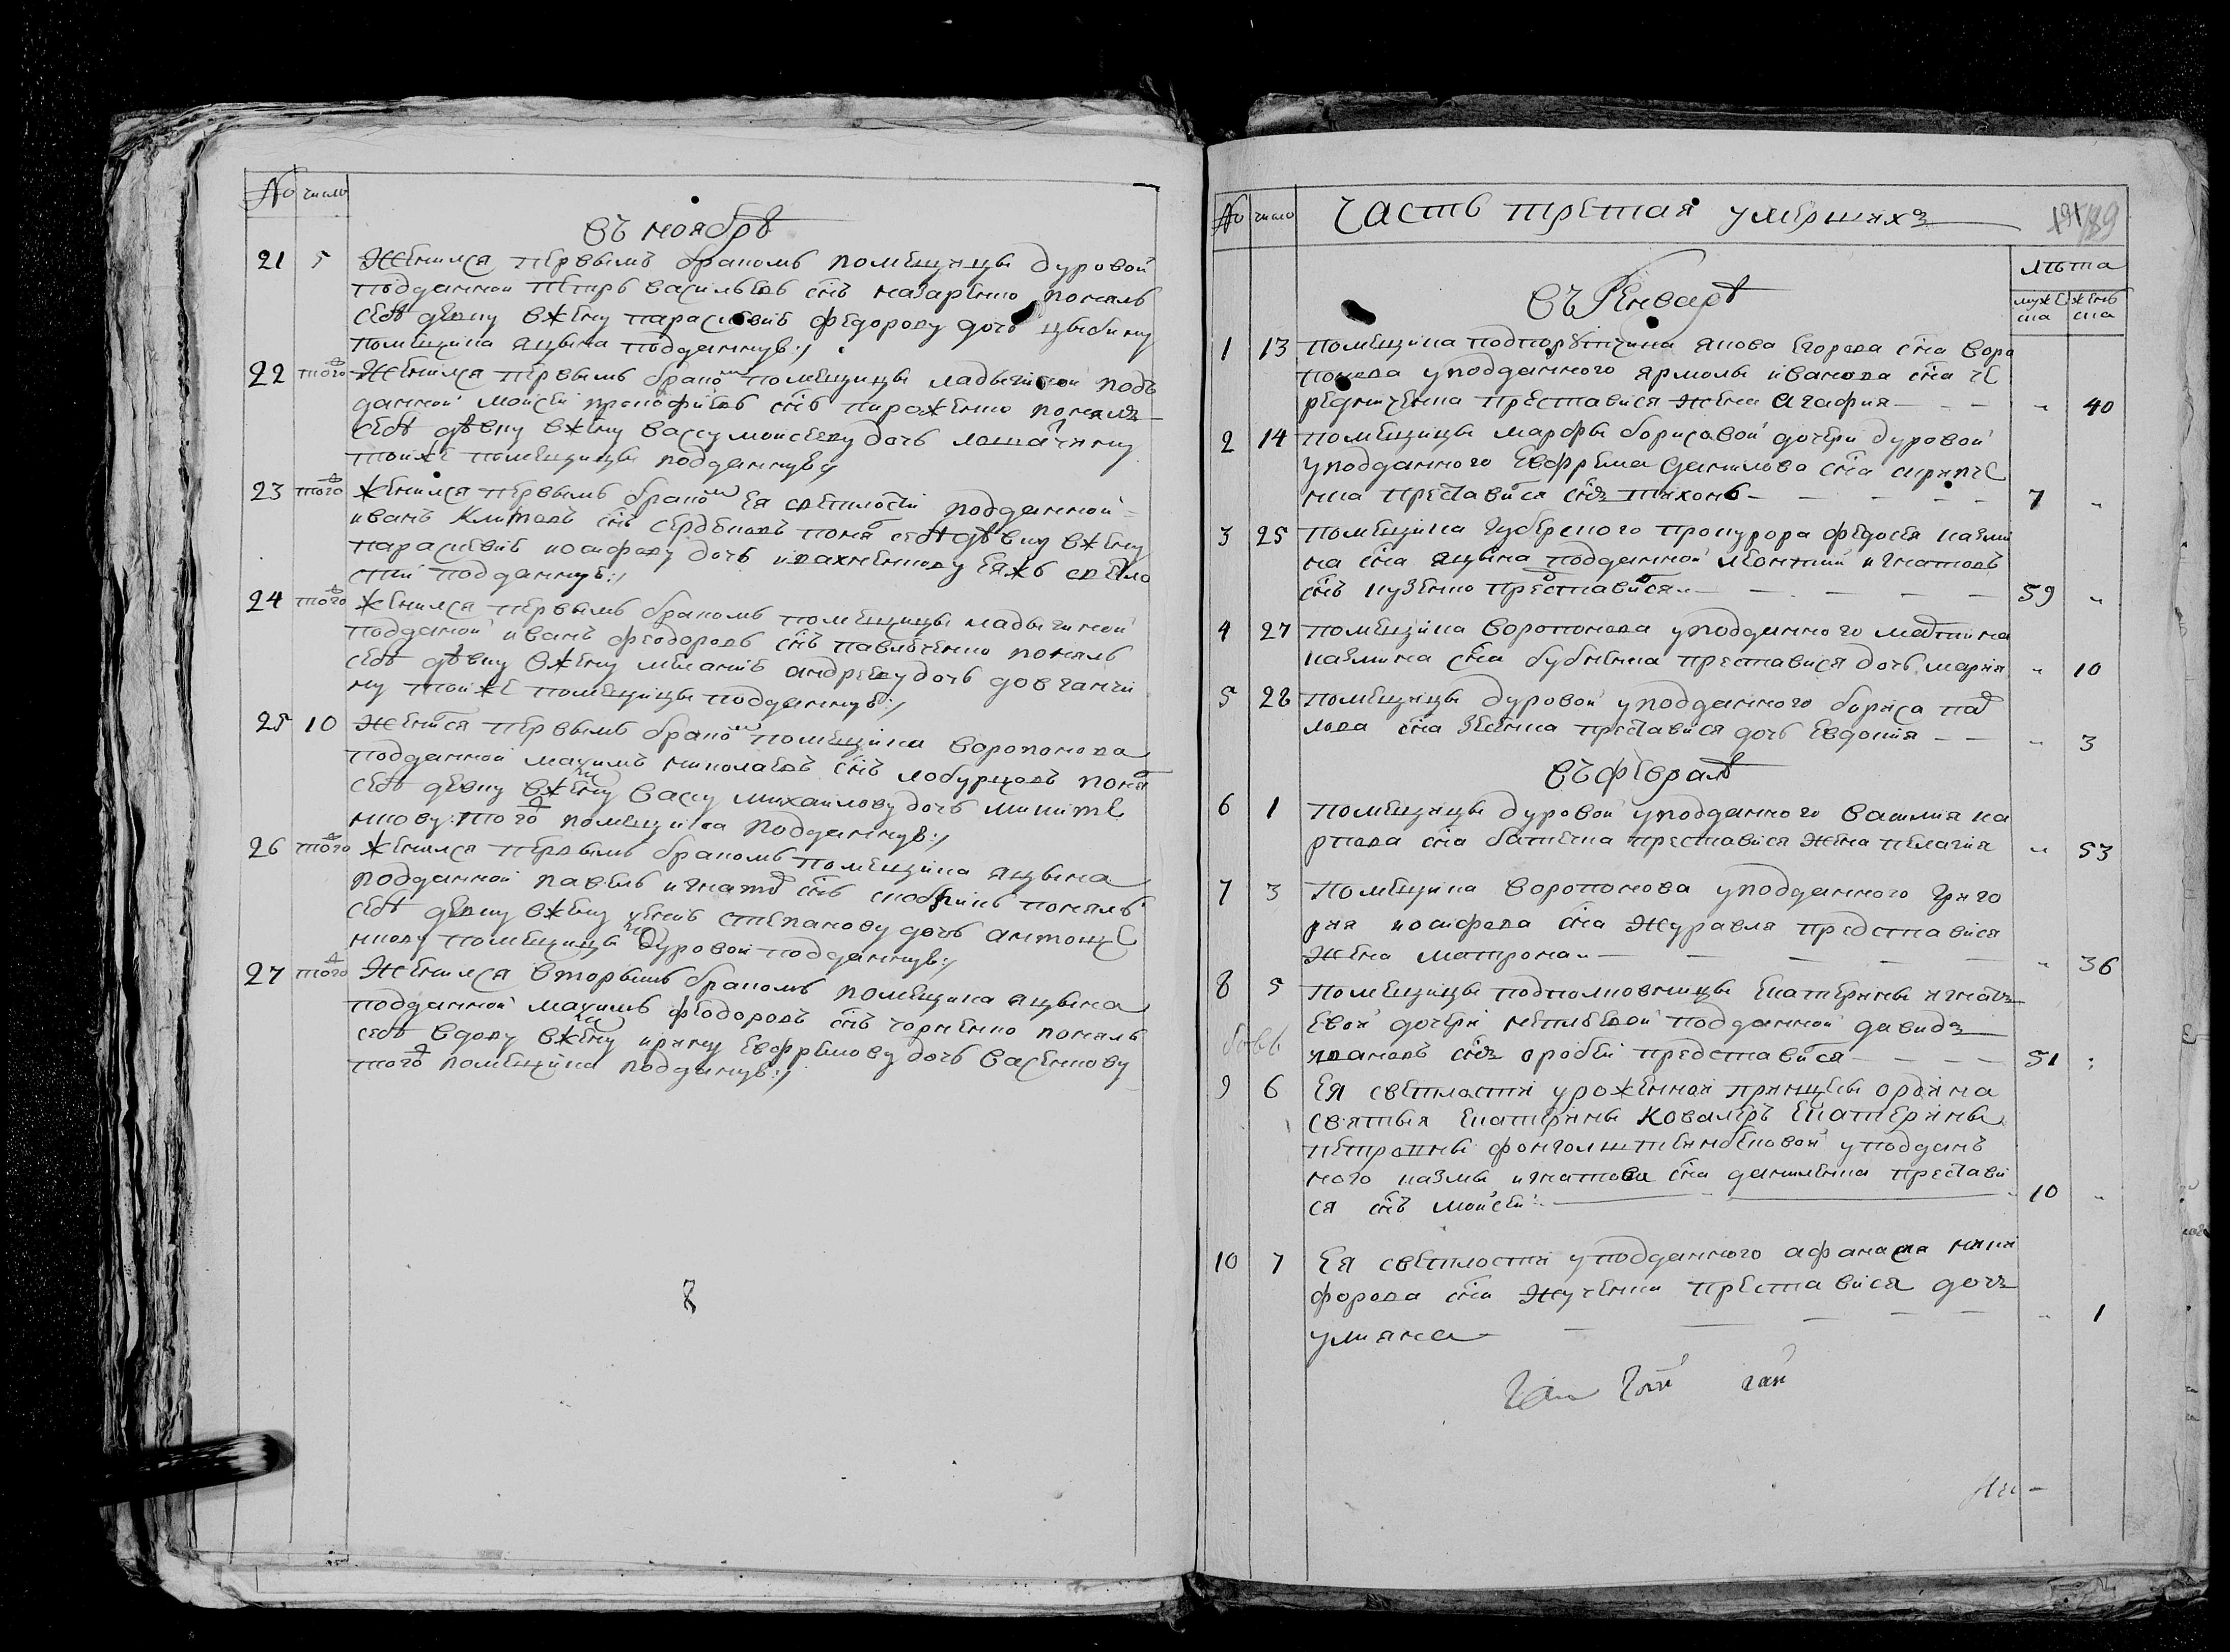 № число
въ ноябрѣ
21 5 Женился первымъ бракомъ помещицы дуровой
подданной петръ васильевъ снъ назаренко понялъ
себѣ девку вжену параскевию федорову дочь цыбину
помещика яцына подданную:/
22 того Женился первымъ бракомъ помещицы ладыгиной подъ
данной моисей прокофиевъ снъ пироженко понялъ
себѣ дѣвку вжену вассу моисееву дочь
тойже помещицы подданную:/
23 того женился первымъ бракомъ Ея светлости подданной
иванъ снъ поня себѣ дѣвку вжену
параскевию иосифову дочь Еяжъ светло
сти подданную:/
24 того женился первымъ бракомъ помещицы ладыгиной
подданой иванъ феодоровъ снъ павлюченко понялъ
себѣ дѣвку вжену меланию андрееву дочь довганчи
ну тойже помещицы подданную:/
25 10 женися первымъ бракомъ помещика воропонова
подданной максимъ николаевъ снъ лобурцовъ поня
себѣ девку вжену вассу михайлову дочь никите
нкову того помещика подданную:/
26 того женился первымъ бракомъ помещика яцына
подданной павелъ снъ понялъ
себѣ девку вжену степанову дочь антоще
нкову помещицы дуровой подданную:/
27 того Женился вторымъ бракомъ помещика яцына
подданной максимъ феодоровъ снъ чорненко понялъ
себѣ вдову вжену ирину Евфремову дочь васенкову
того помещика подданую:/
№ число Часть третая умершихъ
лѣта
въ Январѣ
муже ска женъ ска
1 13 помещика подпорутчика якова Егорова сна воро
понова уподданного ярмолы иванова сна че
редниченка преставися жена агафия " 40
2 14 помещицы марфы борисовой дочери дуровой
уподданного Евфрема данилова сна скрипче
нка преставися снъ тихонъ 7 "
3 25 помещика губерского прокурора федосея казми
на сна яцына подданной леонтий игнатовъ
снъ кузенко преставися 59 "
4 27 помещика воропонова уподданного мартина
казмина сна бубненка преставися дочь мария " 10
5 28 помещицы дуровой уподданного бориса пав
лова сна преставися дочь Евдокия " 3
въ февралѣ
6 1 помещицы дуровой уподданного василия ка
рпова сна батечка преставися жена пелагия " 53
7 3 помещика воропонова уподданного григо
рия иосифова сна журавля представися
жена матрона " 36
8 5 помещицы подполковницы Екатерины игнатъ
евой дочери неплюевой подданной давидъ
ивановъ снъ оробей представися 51 :
9 6 Ея светлости урожденной принцесы ордина
святыя Екатерины ковалеръ Екатерины
петровны фонголштеинбековой уподдан
ного казмы игнатова сна даниленка престави
ся снъ мойсей 10 "
10 7 Ея светлости уподданного афанасия ники
форова сна жученка преставися дочъ
улияна " 1